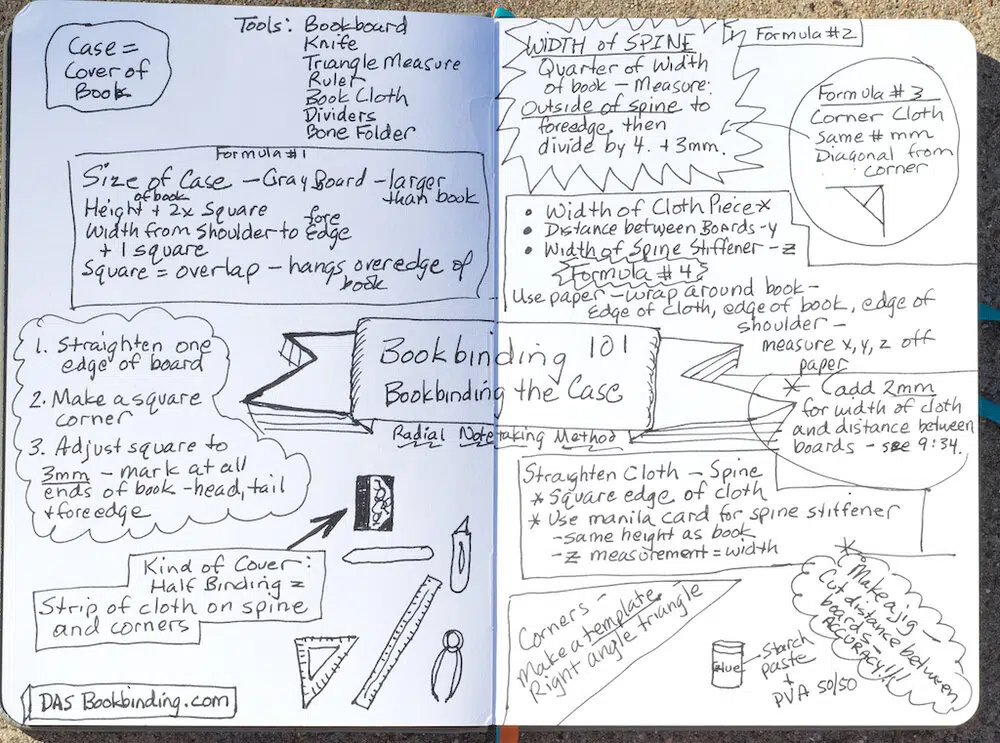 Case =
Cover of
Book
Tools: Bookboard
Knife
Triangle Measure
Ruler
Book Cloth
Dividers
Bone Folder
Formula #1
Size of Case – Gray Board – larger
than book
of book
Height + 2x Square
Width from Shoulder to fore
Edge
+ 1 square
Square = overlap – hangs over edge of
book
1. Straighten one
edge of board
2. Make a square
corner
3. Adjust square to
3mm – mark at all
ends of book – head, tail
+ foreedge
Kind of Cover:
Half Binding =
Strip of cloth on spine
and corners
DAS Bookbinding.com
Bookbinding 101
Bookbinding the Case
Radial Notetaking Method
WIDTH of SPINE
Quarter of Width
of book – Measure:
Outside of spine to
foreedge, then
divide by 4. + 3mm.
Formula #2
Formula #3
Corner Cloth
Same # mm
Diagonal from
corner
• Width of Cloth Piece – x
• Distance between Boards – y
• Width of Spine Stiffener – z
Formula #4
Use paper – wrap around book –
Edge of cloth, edge of book, edge of
shoulder –
measure x, y, z off
paper
* Cadd 2mm
for width of cloth
and distance between
boards – see 9:34.
Straighten Cloth – Spine
* Square edge of cloth
* Use manila card for spine stiffener
– same height as book
– z measurement = width
Corners –
Make a template
Right angle triangle
Glue
Starch
paste
+
PVA 50/50
* Make a jig –
Cut distance between
boards –
ACCURACY!!!